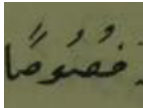 خُصُوصًا